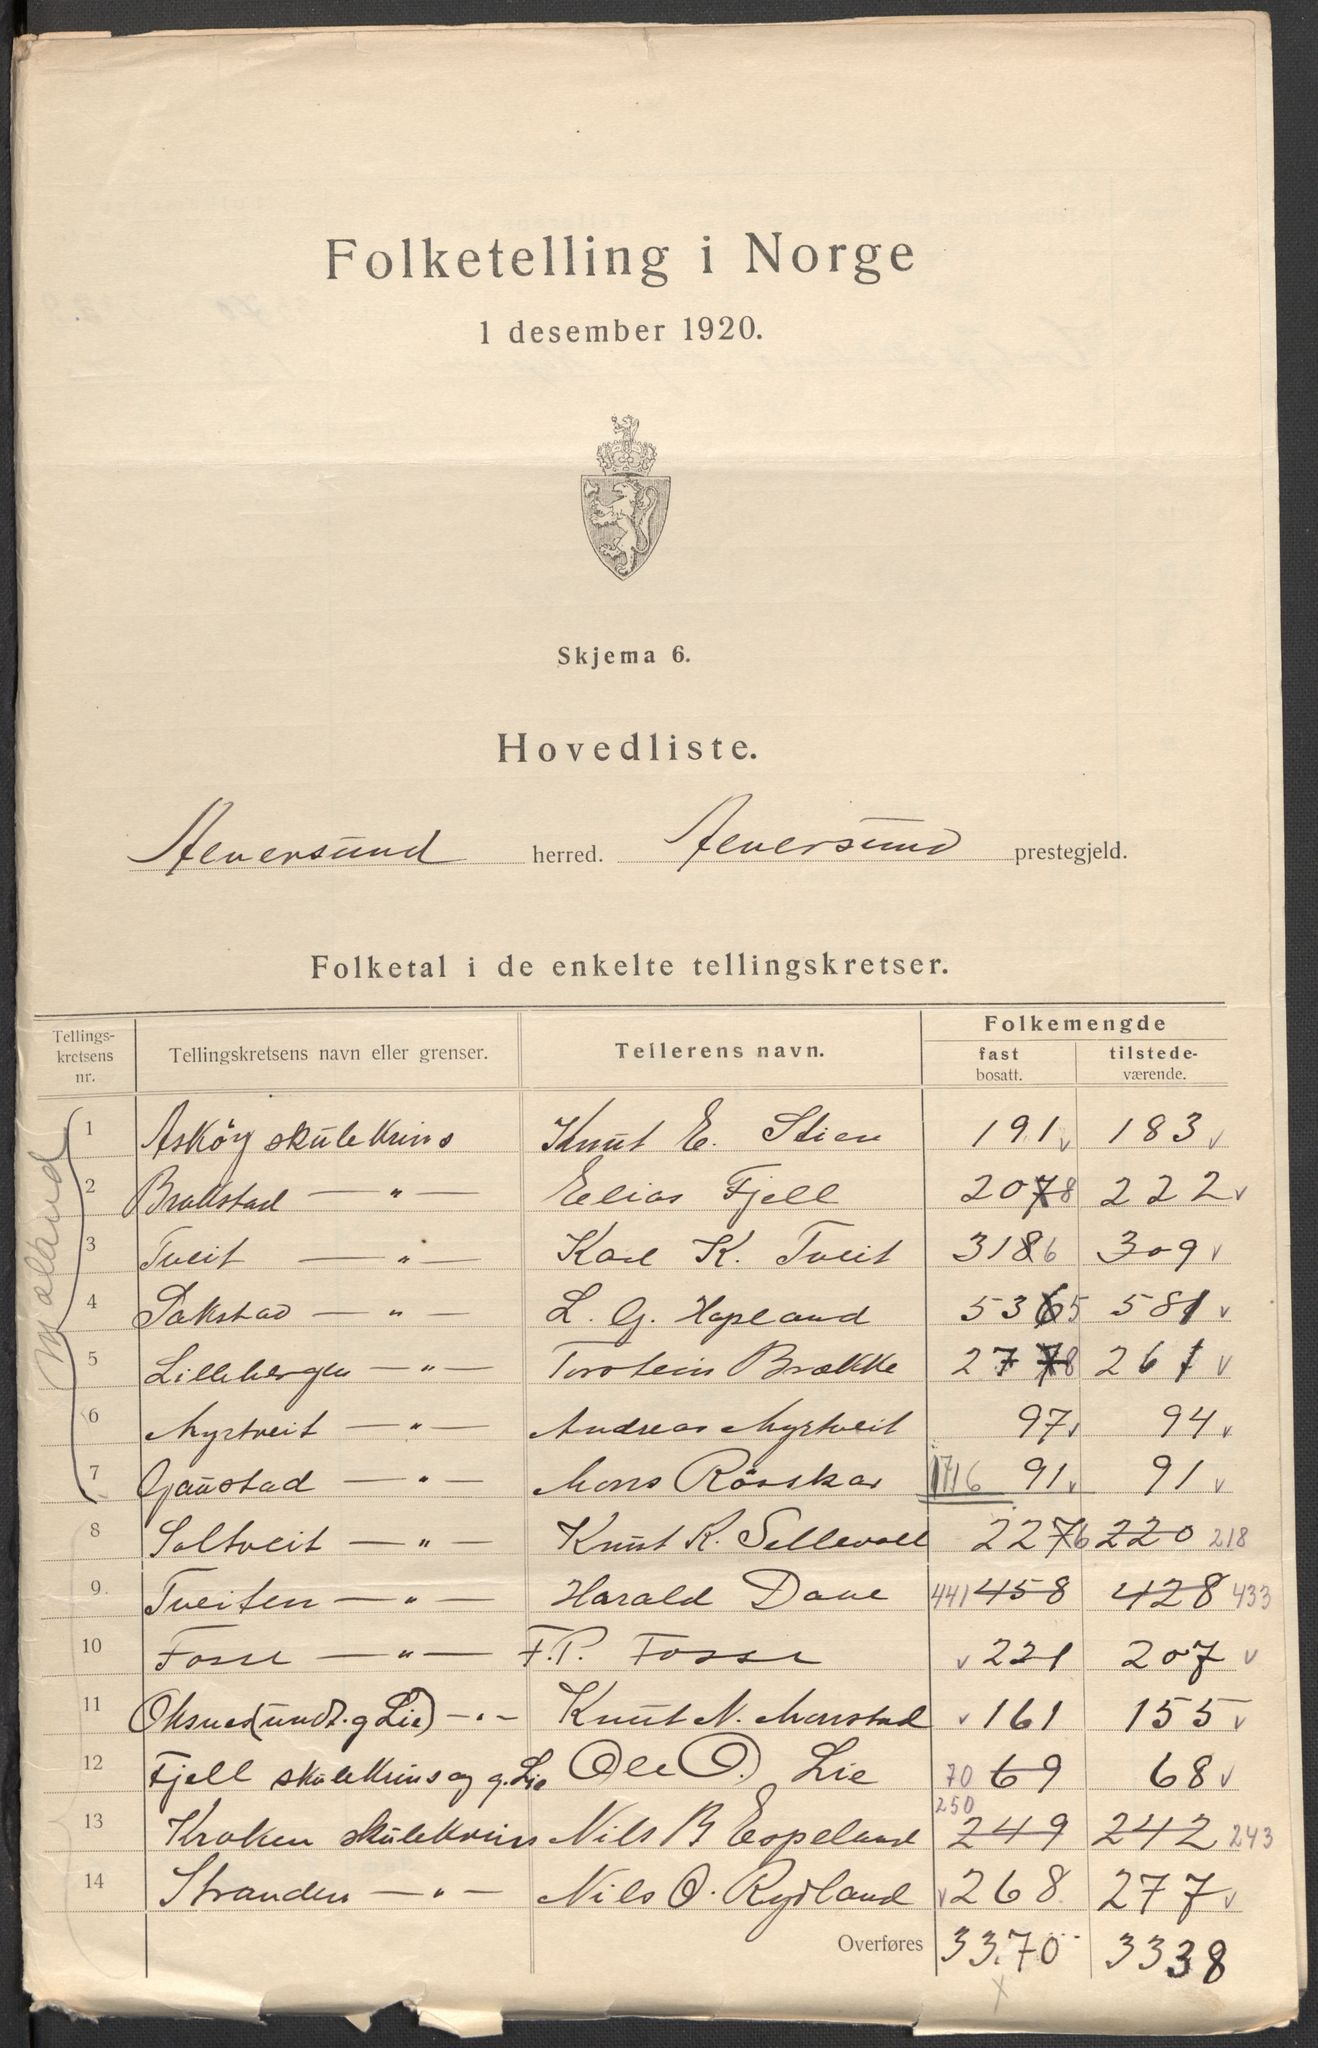 Folketelling i Norge
1 desember 1920.
Skjema 6.
Hovedliste.
Alversund herred. Alversund prestegjeld.
Folketal i de enkelte tellingskretser.
Tellings-kretsens nr. Tellingskretsens navn eller grenser. Tellerens navn. Folkemengde
fast bosatt. tilstede-værende.
Meland
1 Askøy skulekrins Knut E. Stien 191 v 183 v
2 Brakstad — " — Elias Fjell 2078 222 v
3 Tveit — " — Karl K. Tveit 3186 309 v
4 Sakstad — " — L. G. Hopland 5365 581 v
5 Lillebergen — " — Torstein Brække 2778 261 v
6 Myrtveit — " — Andreas Myrtveit 97 v 94 v
7 Gaustad — " — Mons Rösskar 1716 91 v 91 v
8 Soltveit — " — Knut R. Sellevoll 2276 220 218
9 Tveiten — " — Harald Dave 441 458 428 433
10 Fosse — " — F. P. Fosse v 221 207 v
11 Oksnes (undt. g Lie) — " — Knut N. Monstad v 161 155 v
12 Fjell skulekrins og g. Lie Ole O. Lie 70 69 68 v
13 Kroken skulekrins Nils B Espeland 250 249 242 243
14 Stranden — " — Nils O. Rydland v 268 277 v
Overføres 3370 3338
x